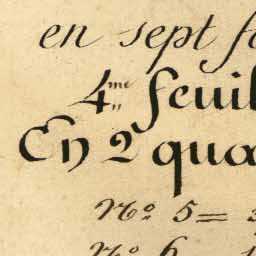 en sept fe
4me feuil
En 2 qua
No. 5 =
No. 6